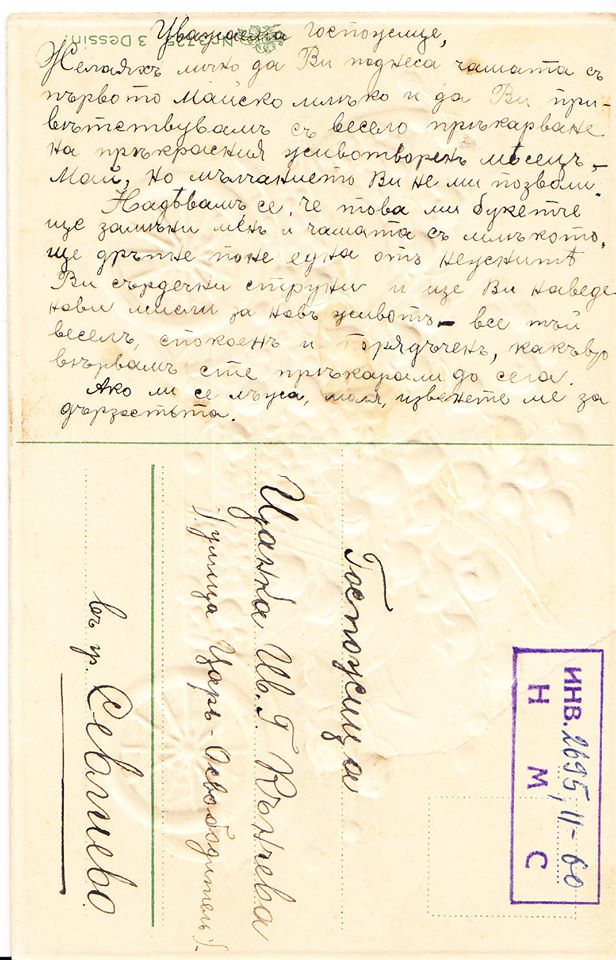 Nr 3725 3 Dessin.
Уважаема госпожице,
Желаяхъ лично да Ви поднеса чашата съ
първото Майско млѣко и да Ви при-
вѣтствувамъ съ весело прѣкарване
на прѣкрасния животворенъ мѣсецъ -
Май, но мълчанието Ви не ми позволи.
Надѣвамъ се, че това ми букетче
ще замѣни менъ и чашата съ млѣкото,
ще дръпне поне една отъ нѣжнитѣ
Ви сърдечни струни и ще Ви наведе
нови мисли за новъ животъ - все тъй
веселъ, спокоенъ и порядъченъ, какъвто
вѣрвамъ сте прѣкарали до сега.
Ако ли се лъжа, моля, извинете ме за
дързостьта.
Госпожица
Цанка Ив. Г. Кънчева
(улица Царь-Освободитель).
въ гр. Севлиево
ИНВ. 2695, II-60
Н М С